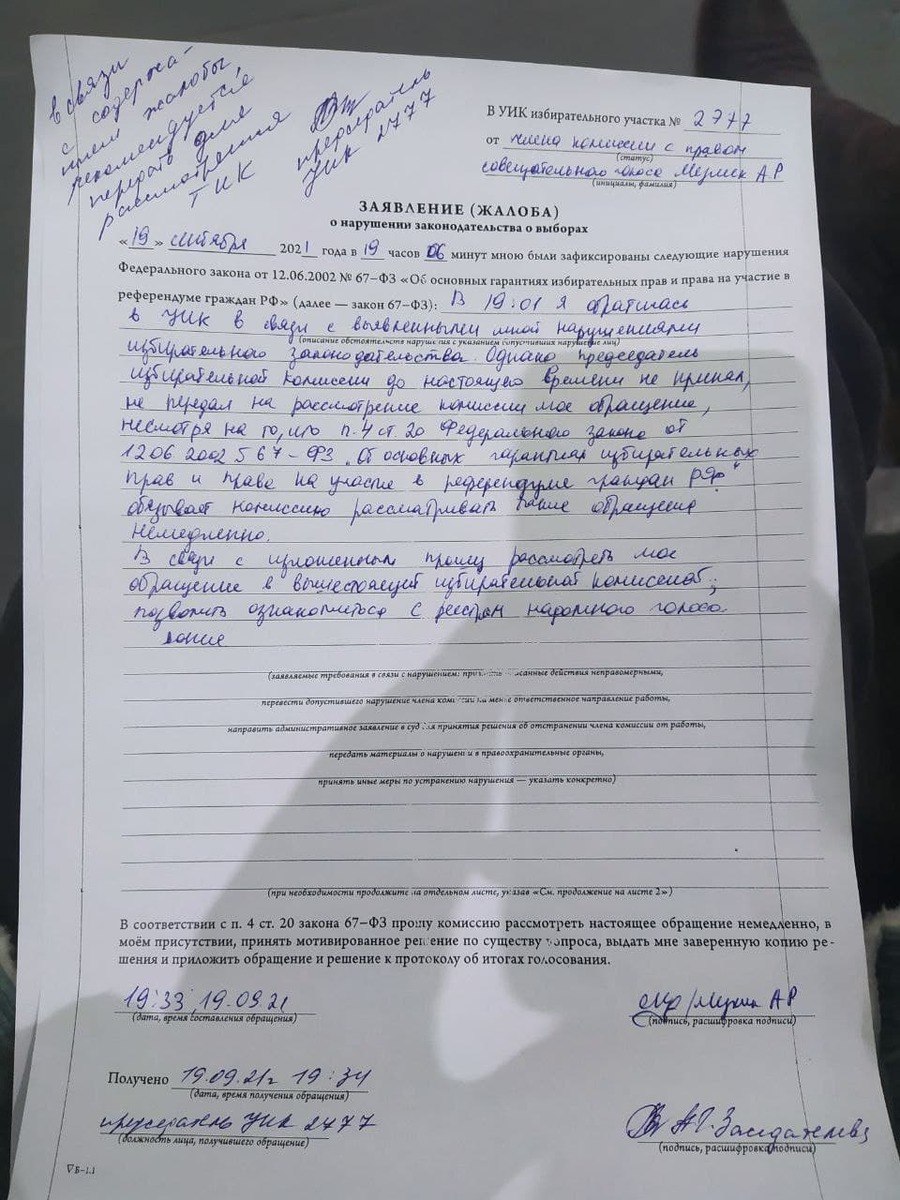 в связи
с содержа-
нием жалобы
рекомендуется
передать для
рассмотрения
ТИК
председатель
УИК 2777
В УИК избирательного участка № 2777
от члена комиссии с правом
(статус)
совещательного голоса АР
(инициалы, фамилия)
ЗАЯВЛЕНИЕ (ЖАЛОБА)
о нарушении законодательства о выборах
«19» сентября 2021 года в 19 часов 06 минут мною были зафиксированы следующие нарушения
Федерального закона от 12.06.2002 № 67–ФЗ «Об основных гарантиях избирательных прав и права на участие в
референдуме граждан РФ» (далее — закон 67–ФЗ): В 19:01 я обратилась
в УИК в связи с выявленными мной нарушениями
(описание обстоятельств нарушения с указанием допустивших нарушение лиц)
избирательного законодательства. Однако председатель
избирательной комиссии до настоящего времени не принял,
не передал на рассмотрение комиссии мое обращение,
несмотря на то, что п.4 ст 20 Федерального закона от
12 06 2002 5 67-ФЗ "Об основных гарантиях избирательных
прав и права на участие в референдуме граждан РФ"
обязывает комиссию рассматривать такие обращения
немедленно.
В связи с изложенным прошу рассмотреть мое
обращение в вышестоящей избирательной комиссией;
позволить ознакомиться с реестром надомного голосо
вания
(заявляемые требования в связи с нарушением: признать описанные действия неправомерными,
перевести допустившего нарушение члена комиссии на менее ответственное направление работы,
направить административное заявление в суд для принятия решения об отстранении члена комиссии от работы,
передать материалы о нарушении в правоохранительные органы,
принять иные меры по устранению нарушения — указать конкретно)
(при необходимости продолжите на отдельном листе, указав «См. продолжение на листе 2»)
В соответствии с п. 4 ст. 20 закона 67–ФЗ прошу комиссию рассмотреть настоящее обращение немедленно, в
моём присутствии, принять мотивированное решение по существу вопроса, выдать мне заверенную копию ре-
шения и приложить обращение и решение к протоколу об итогах голосования.
19:33 19.09.21
АР
(дата, время составления обращения)
(подпись, расшифровка подписи)
Получено 19.09.21г 19:34
(дата, время получения обращения)
председатель УИК 2777
А.Г. Заседателева
(должность лица, получившего обращение)
(подпись, расшифровка подписи)
УБ–1.1